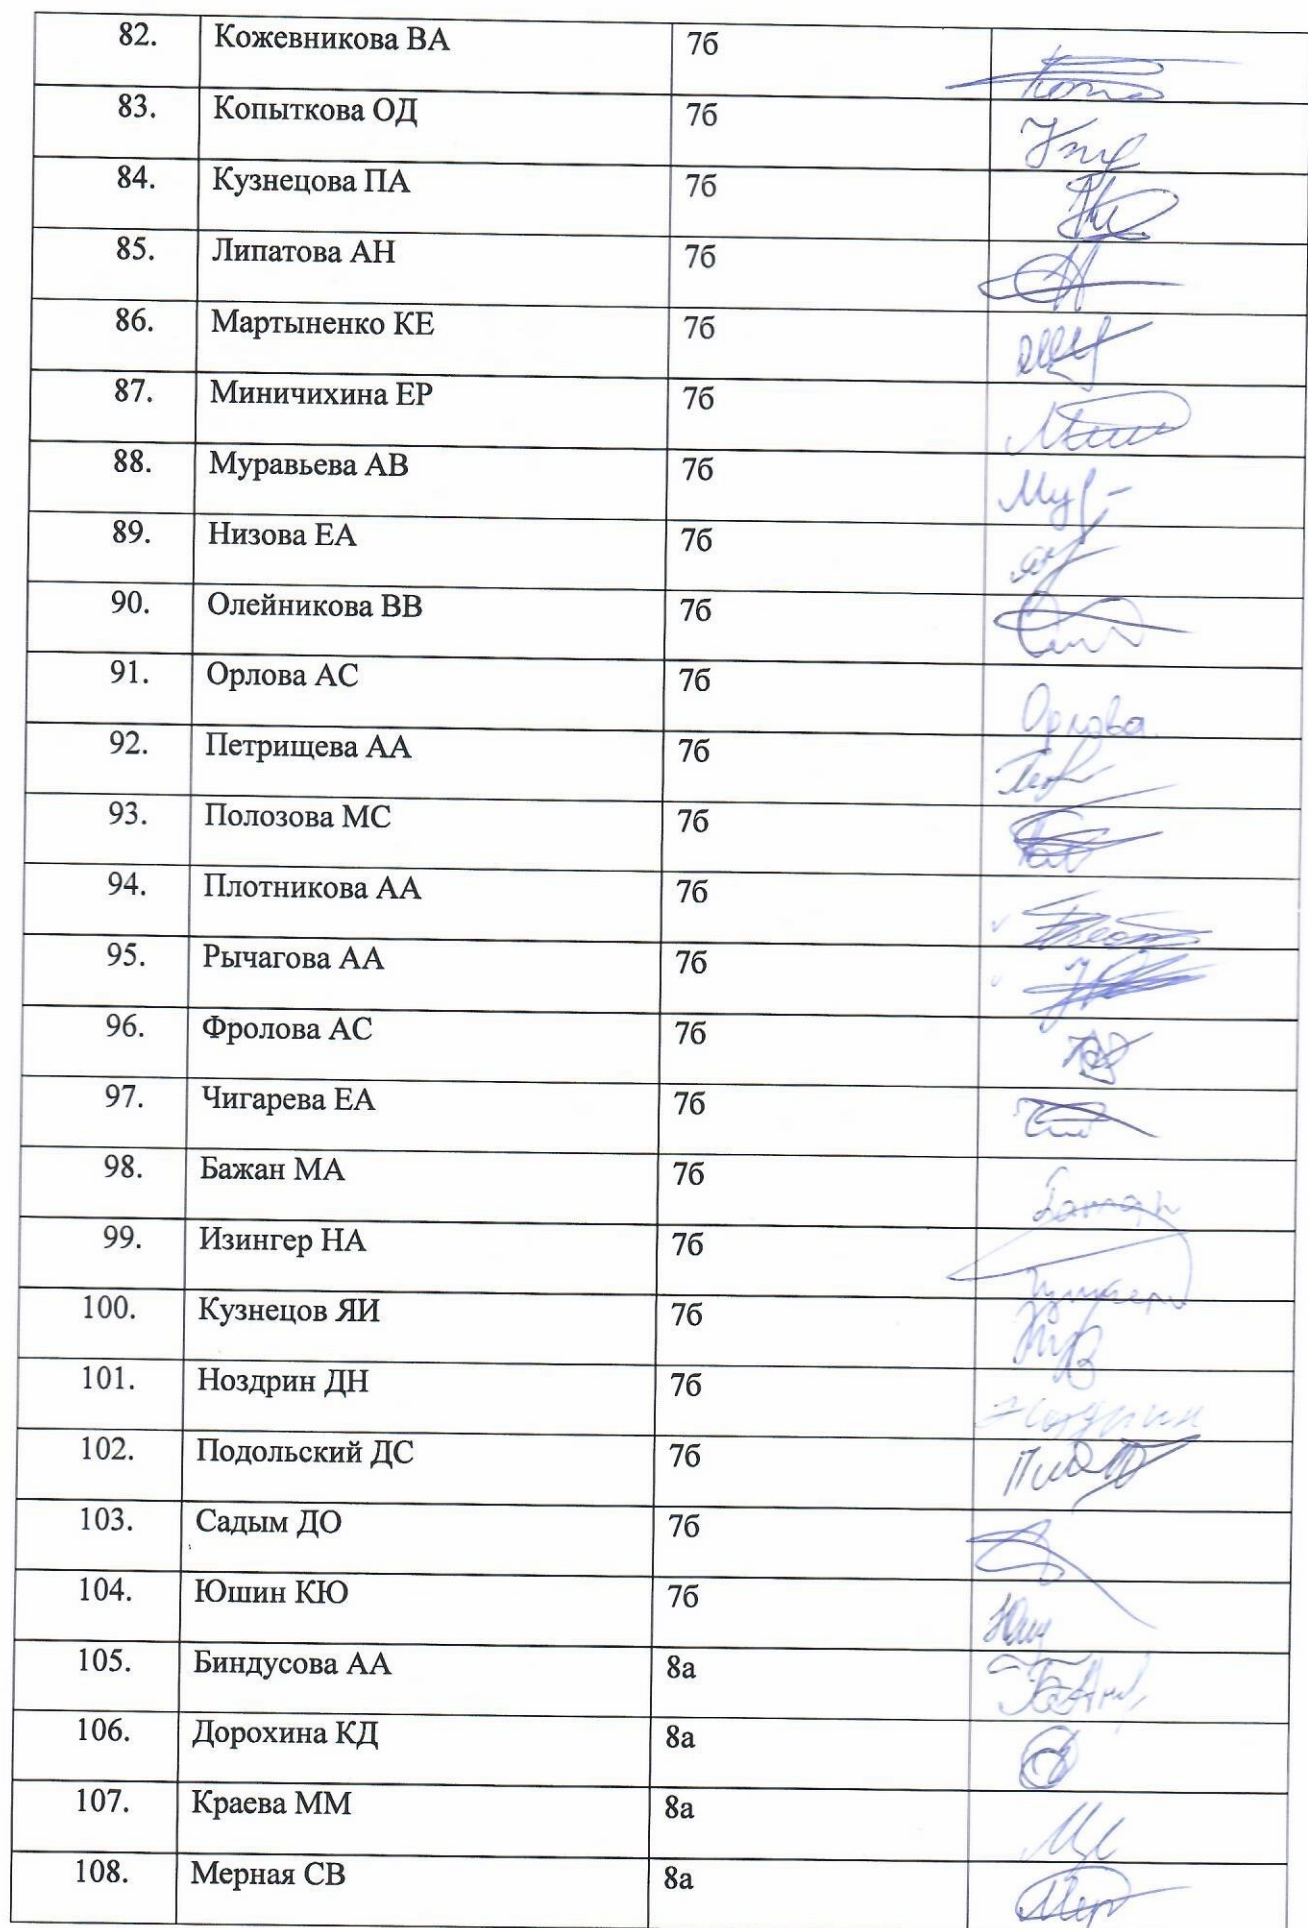 82. Кожевникова ВА 7б
83. Копыткова ОД 7б
84. Кузнецова ПА 7б
85. Липатова АН 7б
86. Мартыненко КЕ 7б
87. Миничихина ЕР 7б
88. Муравьева АВ 7б
89. Низова ЕА 7б
90. Олейникова ВВ 7б
91. Орлова АС 7б Орлова
92. Петрищева АА 7б
93. Полозова МС 7б
94. Плотникова АА 7б
95. Рычагова АА 7б
96. Фролова АС 7б
97. Чигарева ЕА 7б
98. Бажан МА 7б
99. Изингер НА 7б
100. Кузнецов ЯИ 7б
101. Ноздрин ДН 7б Ноздрин
102. Подольский ДС 7б
103. Садым ДО 7б
104. Юшин КЮ 7б
105. Биндусова АА 8а
106. Дорохина КД 8а
107. Краева ММ 8а
108. Мерная СВ 8а